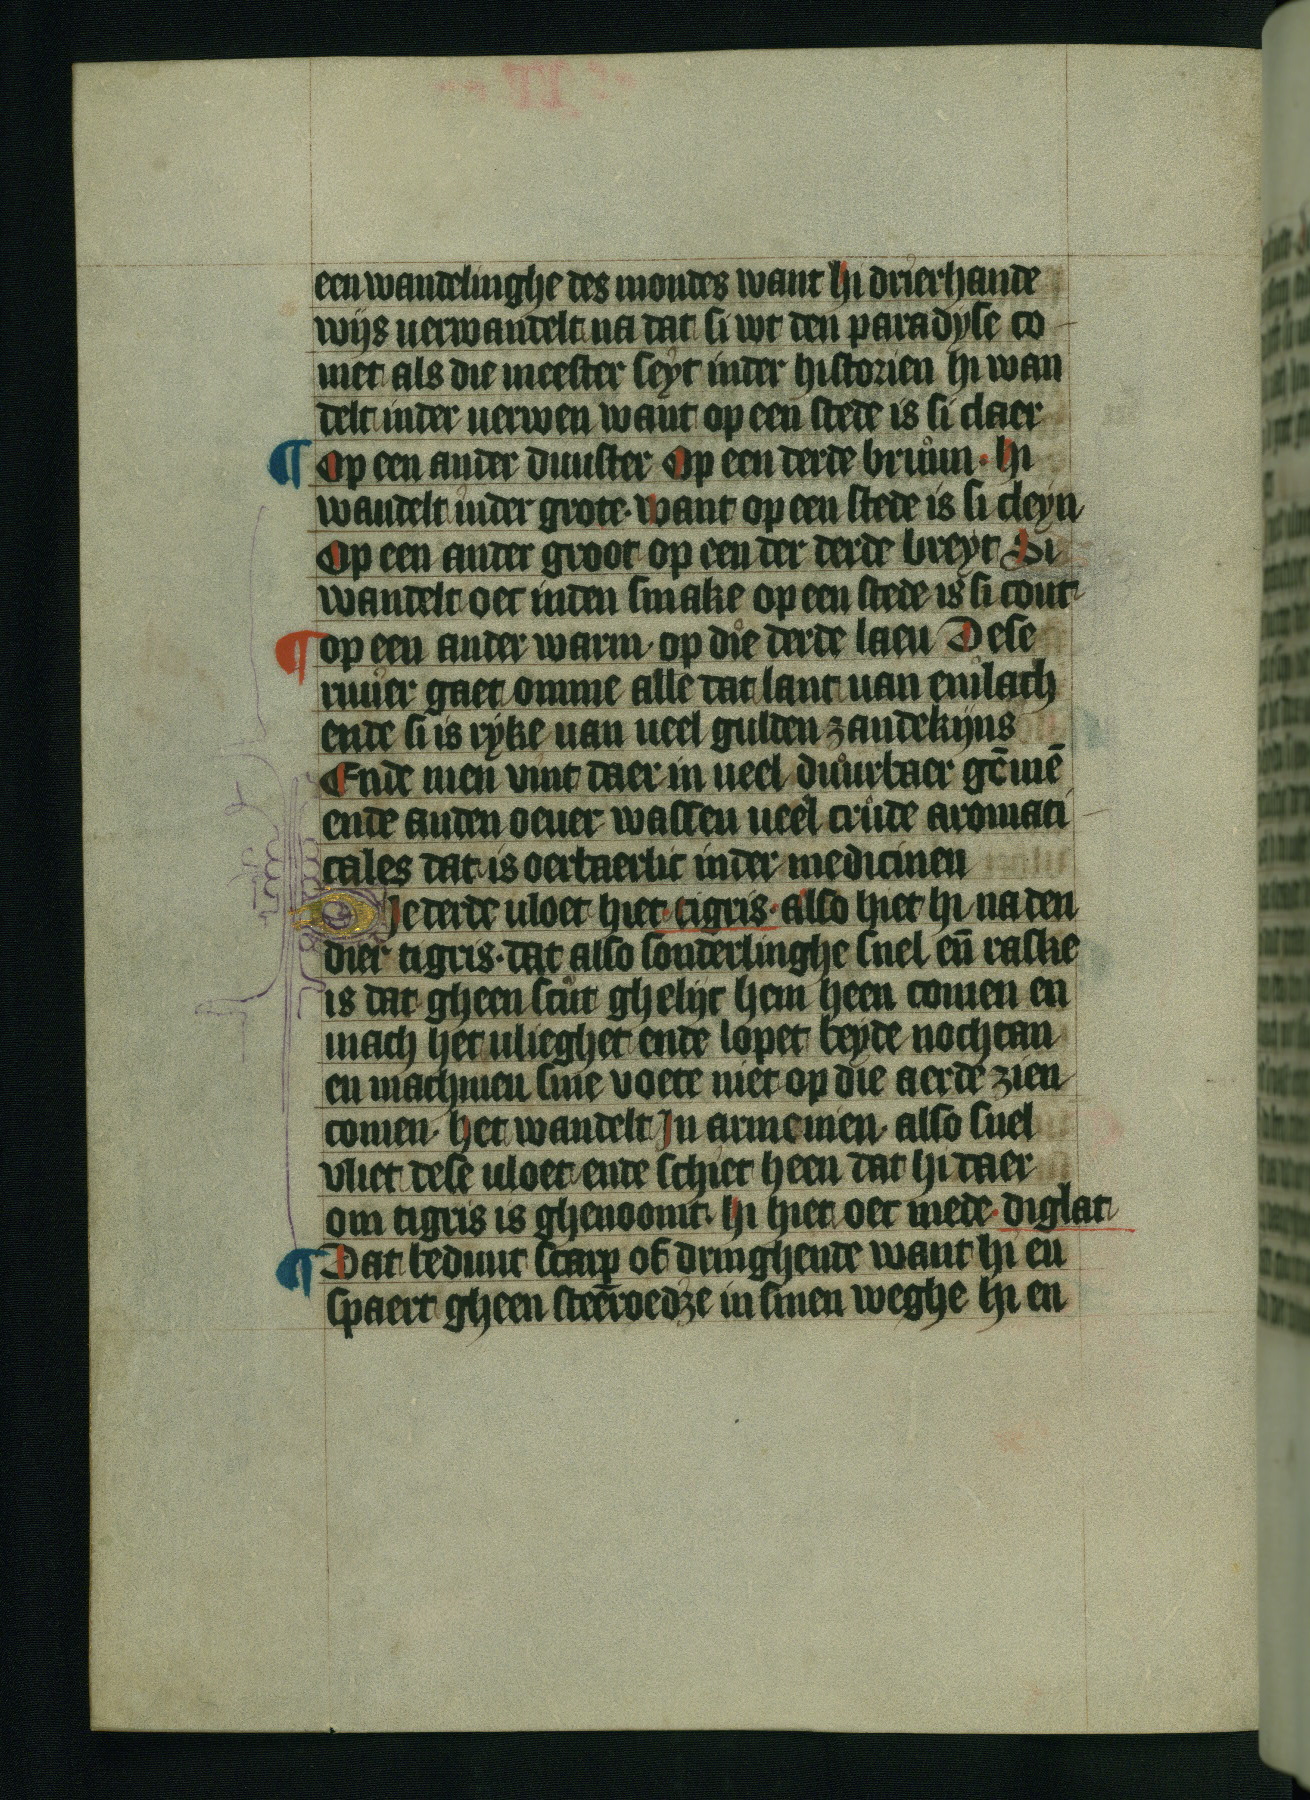 een wandelinghe des mondes want hi drierhande
wijs uerwandelt na dat si wt den paradyse co
met als die meester seyt inder historien hi wan
delt inder uerwen want op een stede is si claer
¶ Op een ander duuster Op een derde bruun · hi
wandelt inder grote · want op een stede is si cleyn
Op een ander groot op een der derde breyt Si
wandelt oec inden smake op een stede is si cout
¶ op een ander warm · op die derde laeu Dese
riuier gaet omme alle dat lant uan euilach
ende si is ryke uan ueel gulden zandekijns
Ende men vint daer in ueel duurbaer gēmē
ende anden oeuer wassen ueel crude aromati
cales dat is oerbaerlic inder medicinen
Die derde uloet hiet · tigris · also hiet hi na den
dier tigris · dat also sonderlinghe snel eñ raske
is dat gheen scut ghelijc hem heen comen en
mach het ulieghet ende lopet beyde nochtan
en machmen sine voete niet op die aerde zien
comen · het wandelt In armeinien · also snel
vliet dese uloet ende schiet heen dat hi daer
om tigris is ghenoomt · hi hiet oec mede · diglat
¶ Dat beduut scarp of dringhende want hi en
spaert gheen steēroedze in sinen weghe hi en